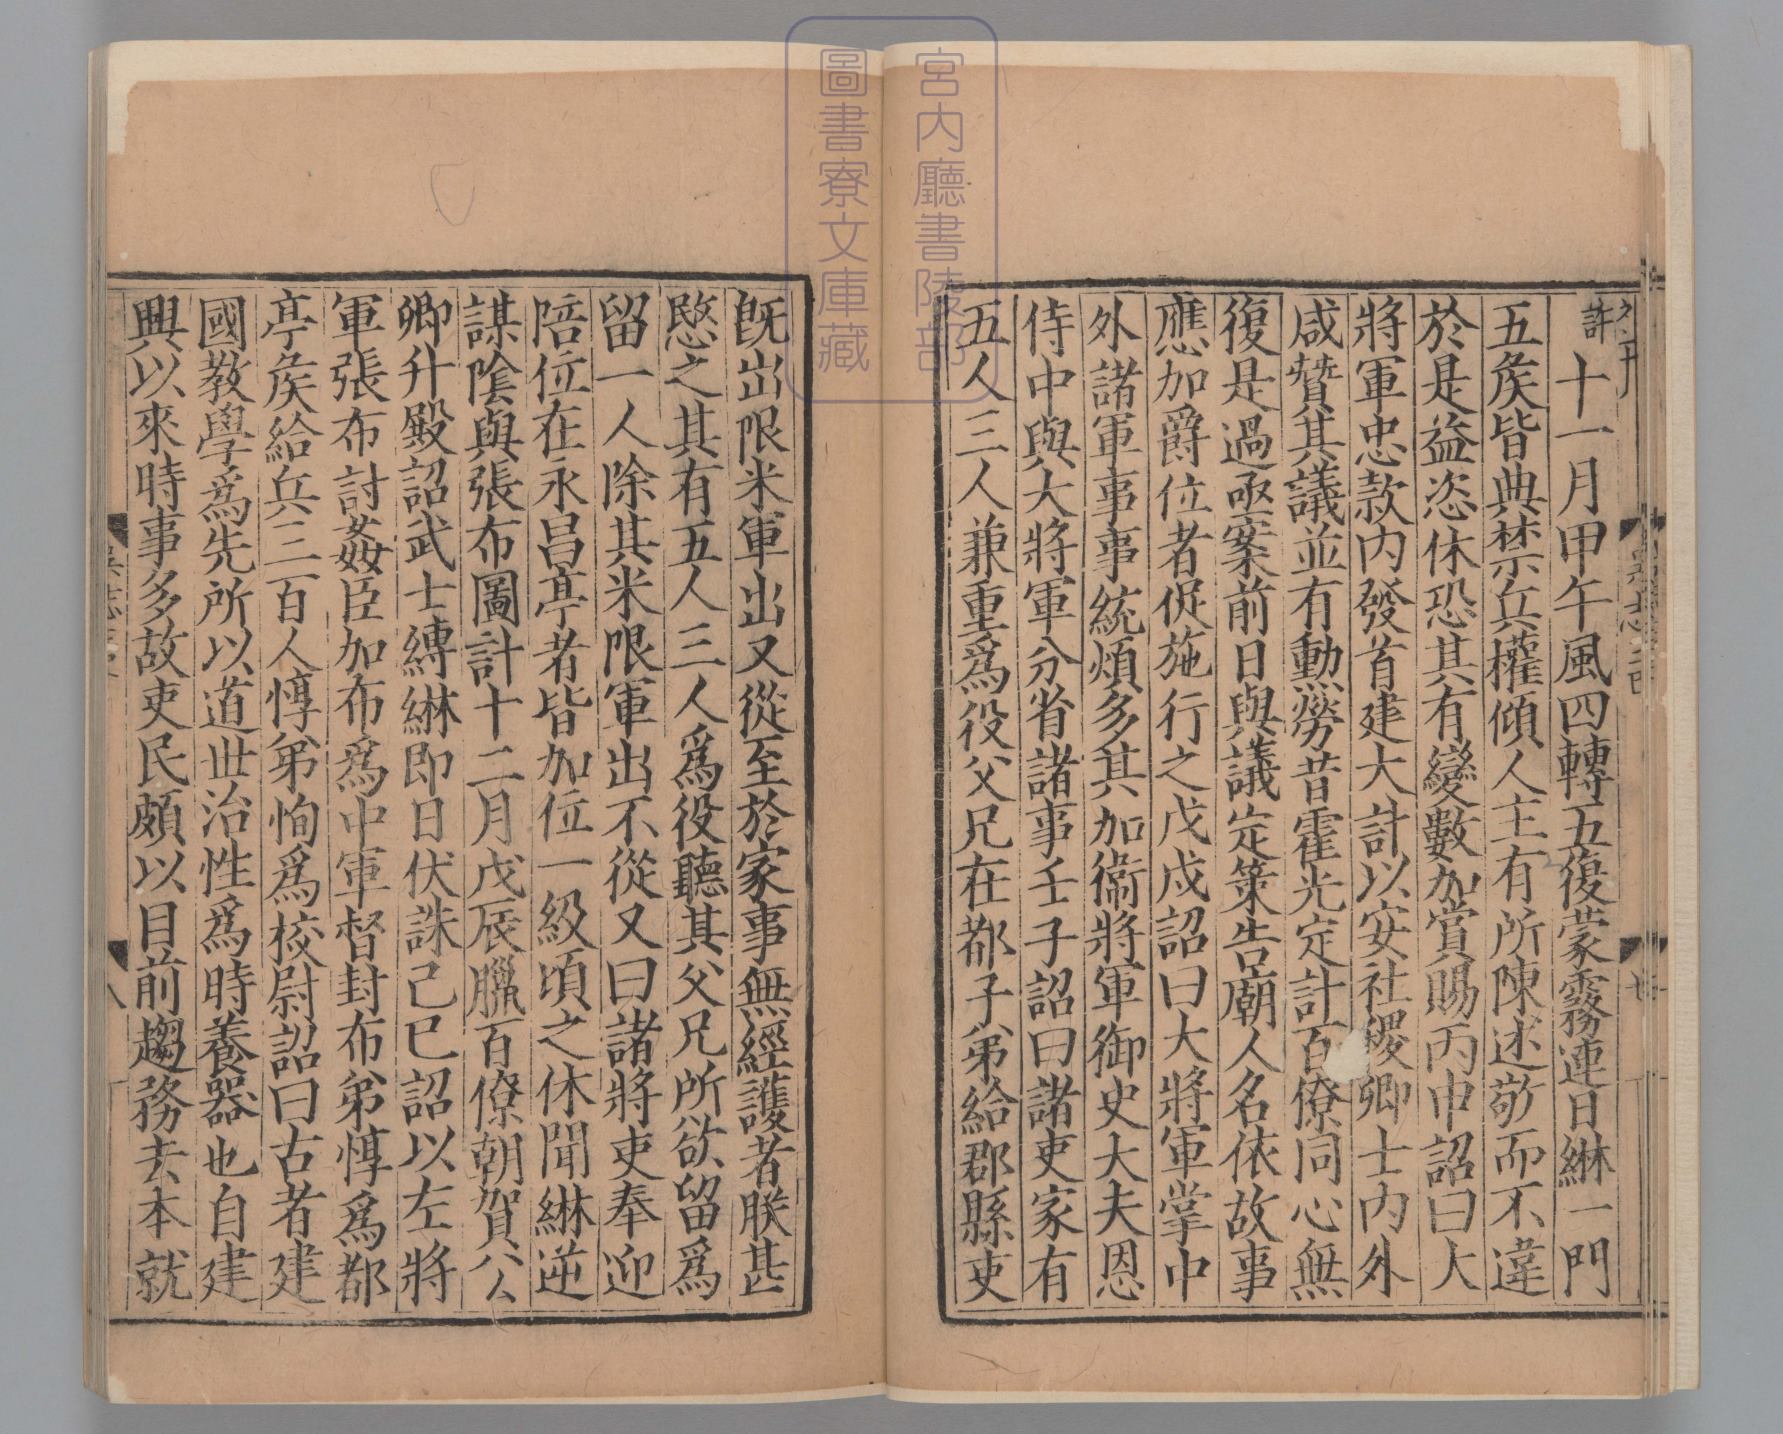 宮内廳書陵部
圖書寮文庫藏
許十一月甲午風四轉五復蒙霧連日綝一門
五矦皆典禁兵權傾人主有所陳述敬而不違
於是益恣休恐其有變數加賞賜丙申詔曰大
將軍忠款内發首建大計以安社稷卿士内外
咸贊其議並有勳勞昔霍光定計百僚同心無
復是過亟案前日與議定策告廟人名依故事
應加爵位者促施行之戊戌詔曰大將軍掌中
外諸軍事事統煩多其加衞將軍御史大夫恩
侍中與大將軍分省諸事壬子詔曰諸吏家有
五人三人兼重爲役父兄在都子弟給郡縣吏
旣出限米軍出又從至於家事無經護者朕甚
愍之其有五人三人爲役聽其父兄所欲留爲
留一人除其米限軍出不從又曰諸將吏奉迎
陪位在永昌亭者皆加位一級頃之休聞綝逆
謀隂與張布圖計十二月戊辰臘百僚朝賀公
卿升殿詔武士縛綝即日伏誅己巳詔以左將
軍張布討姦臣加布爲中軍督封布弟惇爲都
亭矦給兵三百人惇弟恂爲校尉詔曰古者建
國教學爲先所以道世治性爲時養器也自建
興以來時事多故吏民頗以目前趨務去本就
八